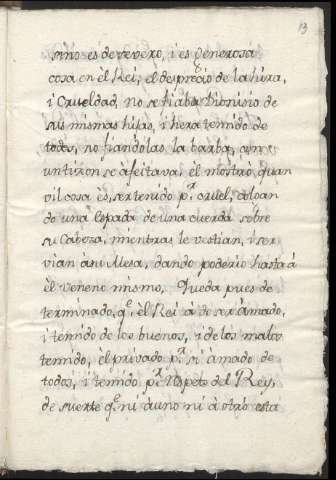 13
sino es de severo, i es Generosa
cosa, en èl Rei, èl desprecio de la hira,
i Crueldad, no se fiaba Dionisio de
sus mismas hijas, i hera temido de
todos, no fiandolas la barba, con
un tizon se àfeitava, èl mostrò, quan
vil cosa es, ser temido p.r cruel, colgan
do una Espada de una cuerda sobre
su Cabeza, mientras le vestian, i ser
vian à su Mesa, dando poderio hasta à
èl veneno mismo, Queda pues de
terminado, q.e èl Rei à de ser àmado,
i temido de los buenos, i de los malos
temido, èl privado p.r si àmado de
todos, i temido p.r Respeto del Rey,
de suerte q.e ni à uno ni à otro està